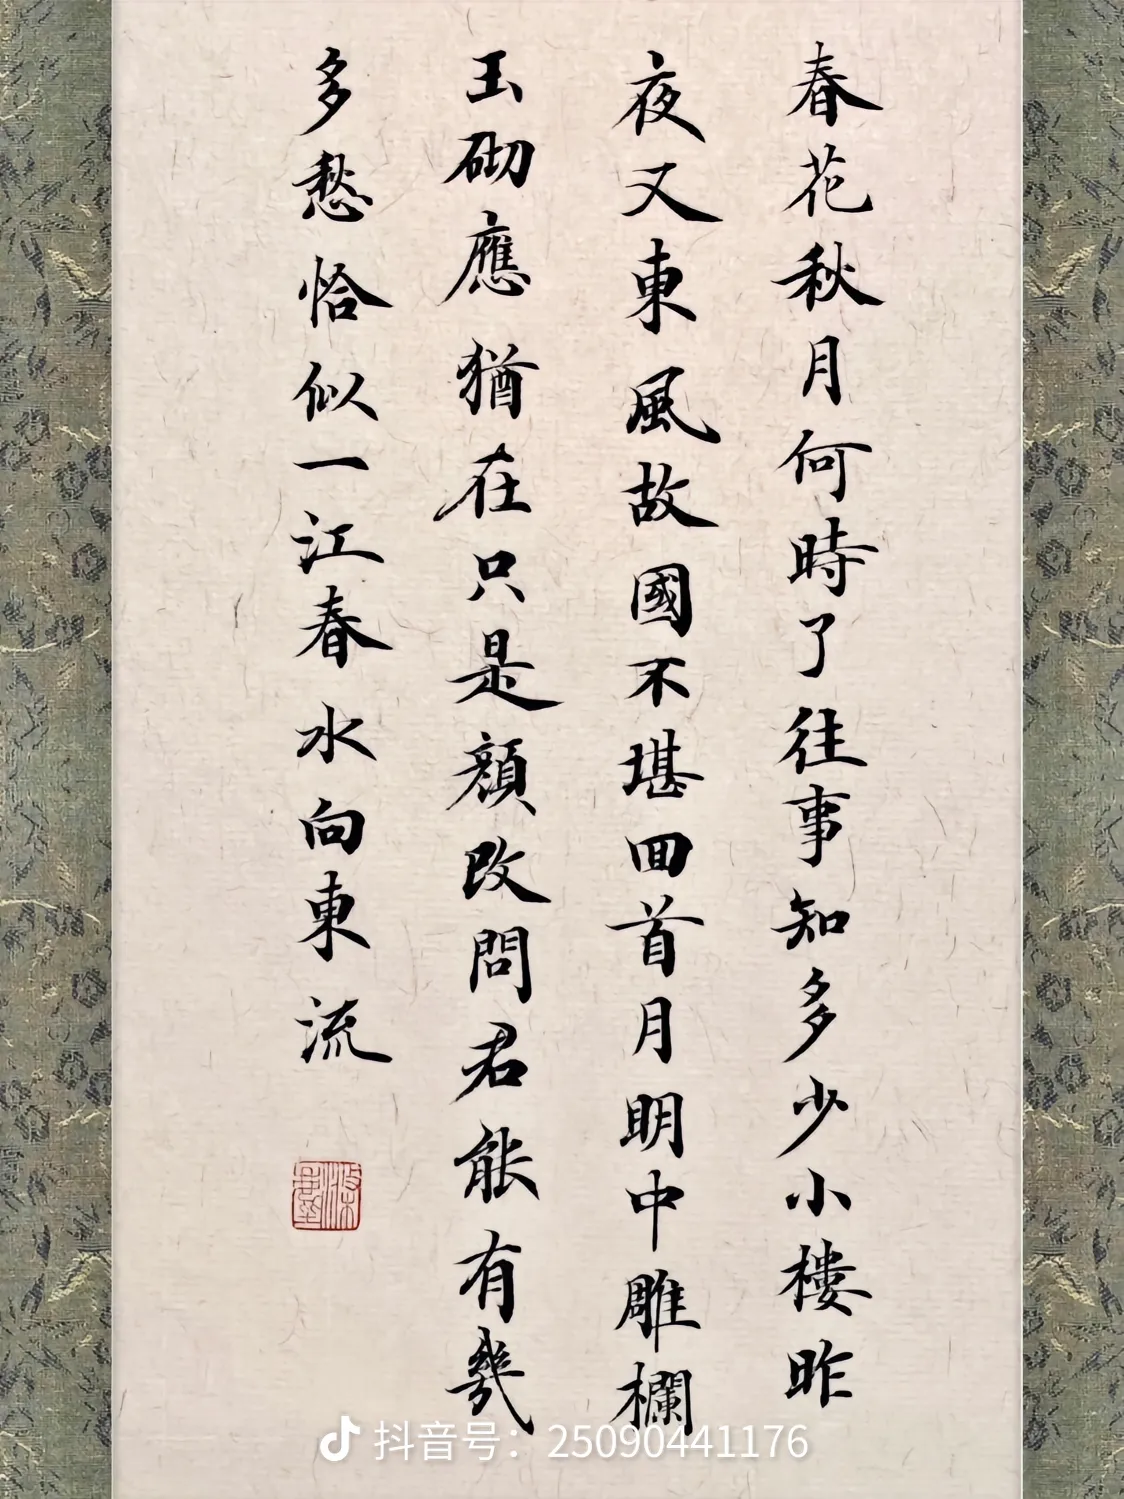 春花秋月何時了往事知多少小樓昨
夜又東風故國不堪回首月明中雕欄
玉砌應猶在只是顏改問君能有幾
多愁恰似一江春水向東流
抖音号：25090441176